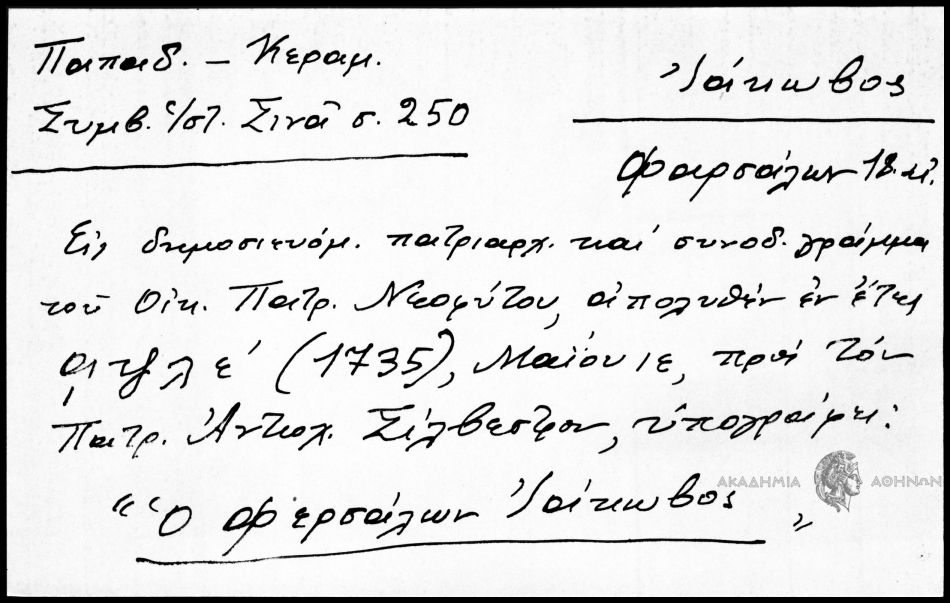 Παπαδ. – Κεραμ.
Συμβ. ἱστ. Σινᾶ σ. 250
Ἰάκωβος
Φαρσάλων 18. μ.
Εἰς δημοσιευόμ. πατριαρχ. καί συνοδ. γράμμα
τοῦ Οἰκ. Πατρ. Νεοφύτου, ἀπολυθέν ἐν ἔτει
͵αψλε΄ (1735), Μαΐου ιε, πρός τόν
Πατρ. Ἀντιοχ. Σίλβεστρον, ὑπογράφει:
ΑΚΑΔΗΜΙΑ ΑΘΗΝΩΝ
“Ὁ Φερσάλων Ἰάκωβος„